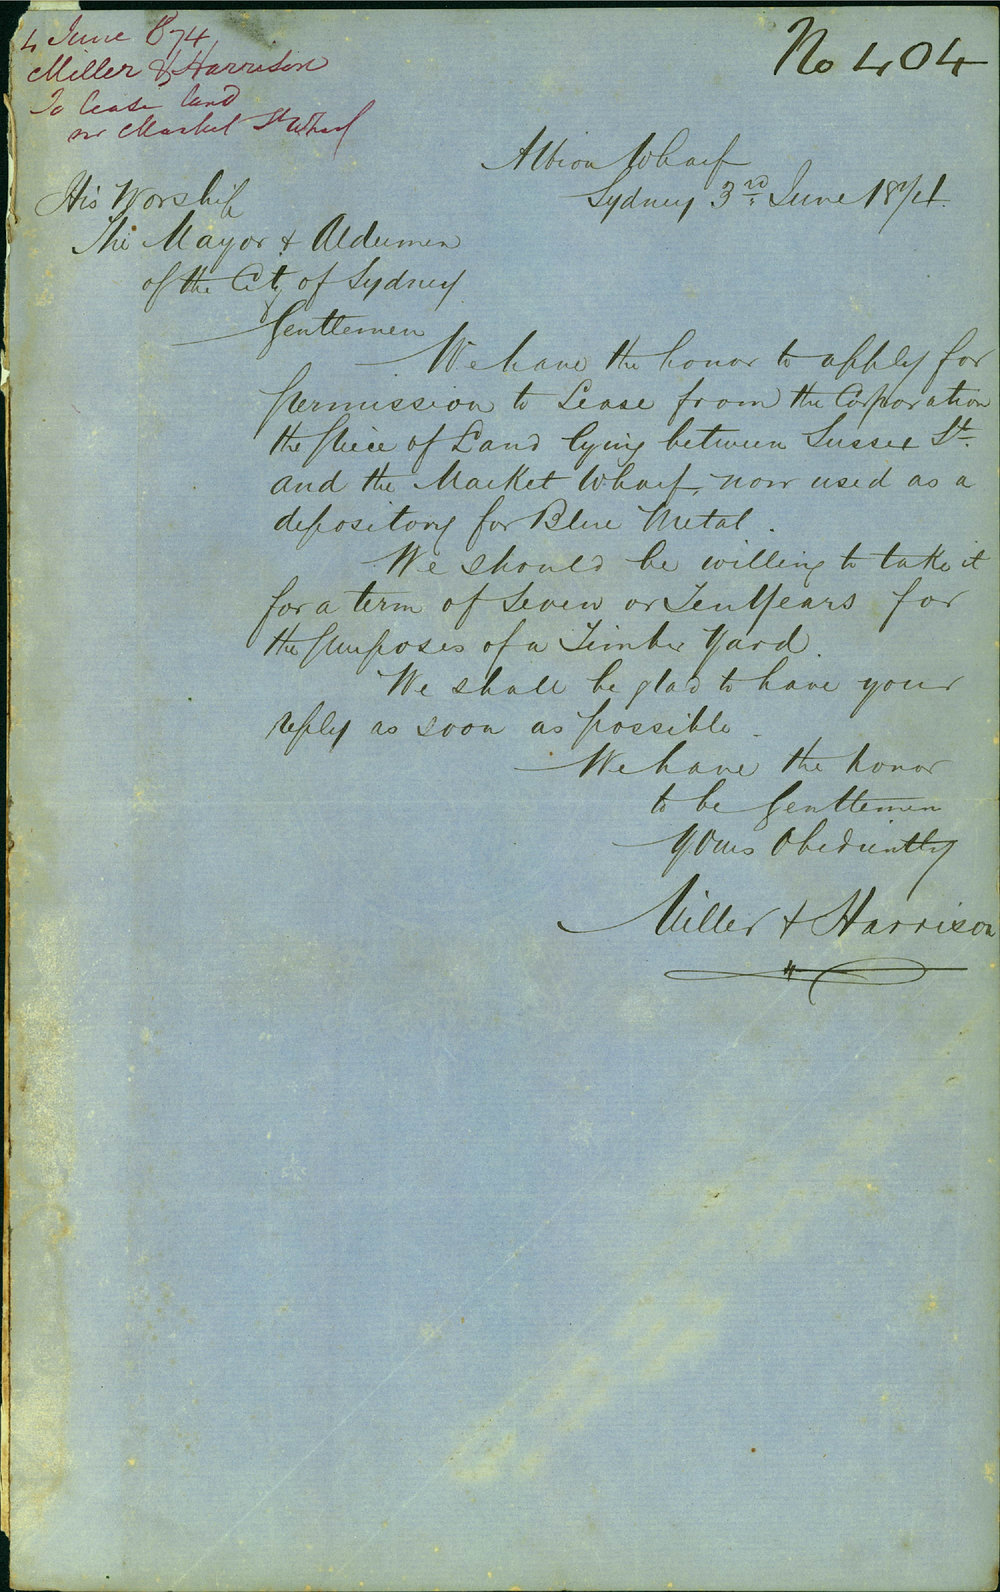 4 June 874
Miller & Harrison
To lease land
nr Market St Wharf
No 404
Albion Wharf
Sydney 3rd June 1874.
His Worship
The Mayor & Aldermen
of the City of Sydney
Gentlemen
We have the honor to apply for
permission to Lease from the Corporation
the piece of Land lying between Sussex St.
and the Market Wharf, now used as a
depository for Blue Metal.
We should be willing to take it
for a term of Seven or Ten Years for
the purposes of a Timber Yard.
We shall be glad to have your
reply as soon as possible.
We have the honor
to be Gentlemen
Yours Obediently
Miller & Harrison